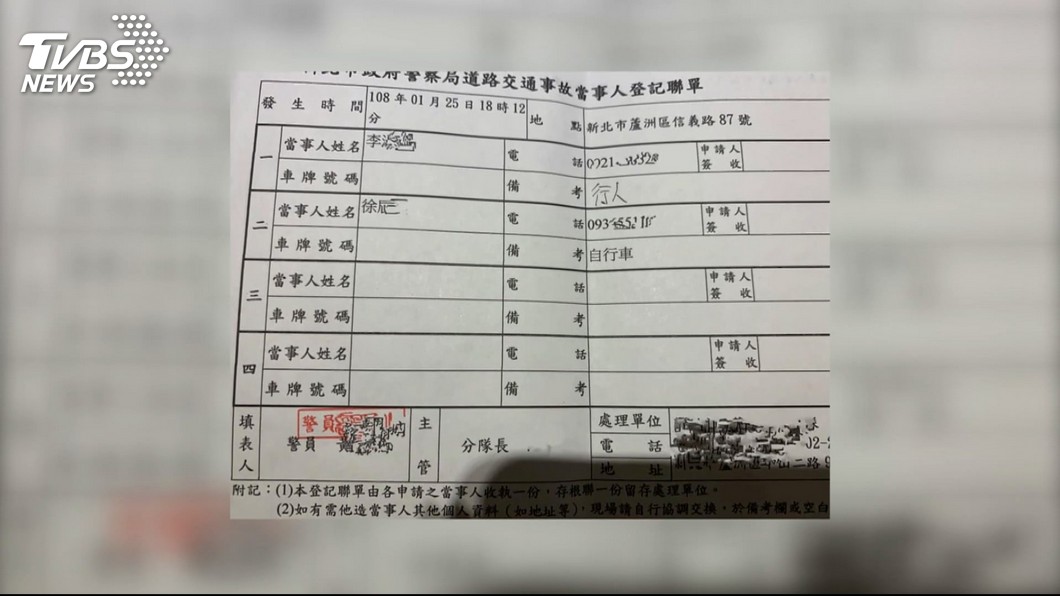 TVBS
NEWS
新北市政府警察局道路交通事故當事人登記聯單
發生時間 108年01月25日18時12分 地點 新北市蘆洲區信義路87號
一 當事人姓名 李 電話 0921 申請人簽收
車牌號碼 備考 行人
二 當事人姓名 徐 電話 093 申請人簽收
車牌號碼 備考 自行車
三 當事人姓名 電話 申請人簽收
車牌號碼 備考
四 當事人姓名 電話 申請人簽收
車牌號碼 備考
填表人 警員 警員 主管 分隊長 處理單位
電話 02-
地址 蘆洲區 二路
附記：(1)本登記聯單由各申請之當事人收執一份，存根聯一份留存處理單位。
(2)如有需他造當事人其他個人資料（如地址等），現場請自行協調交換，於備考欄或空白